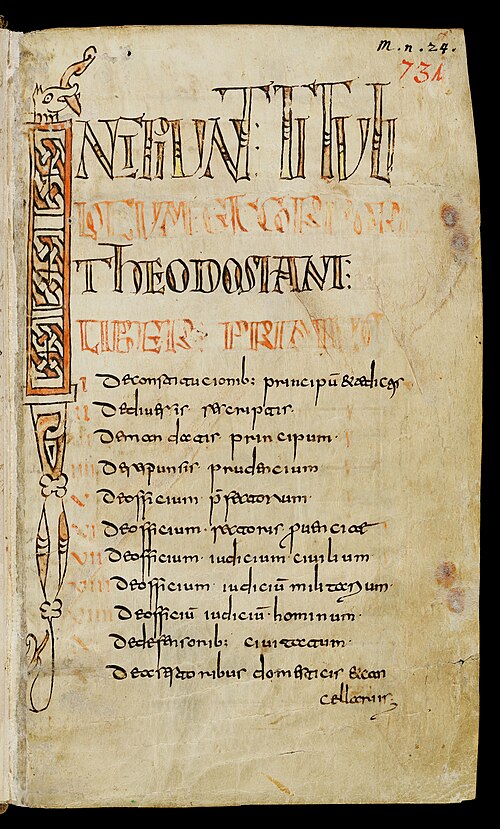 M. n. 24.
731
INCIPIUNT: TITULI
THEODOSIANI:
LIBER: PRIMUS
I Deconstitucionib: principū & edictis
II Dediuersis rescriptis
III Demandatis principum
IIII Deresponsis prudencium
V Deofficium p̄fectorum
VI Deofficium rectoris prouinciae
VII Deofficium iudicium ciuilium
VIII Deofficium iudiciū militarium
VIIII Deofficiū iudiciū hominum
Dedefensorib: ciuitatum
Deadsessoribus domesticis & can
cellariis